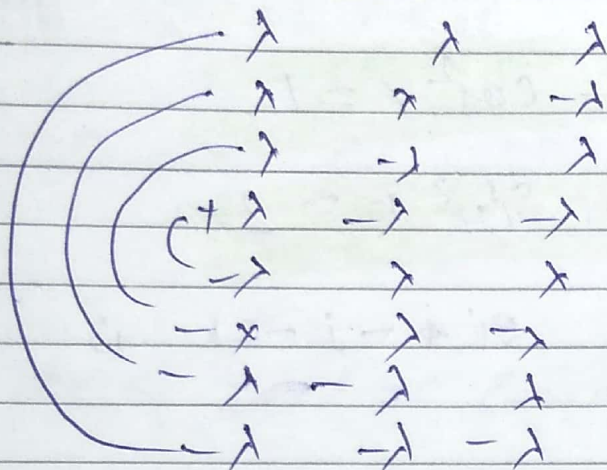 λ λ λ
λ λ -λ
λ -λ λ
+λ -λ -λ
-λ λ λ
-λ λ -λ
-λ -λ λ
-λ -λ -λ